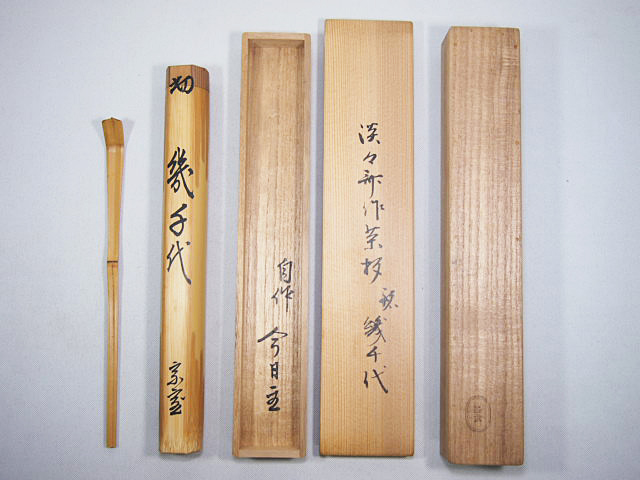 幾千代
宗室
自作
今日主
淡々斎作茶杓
銘幾千代